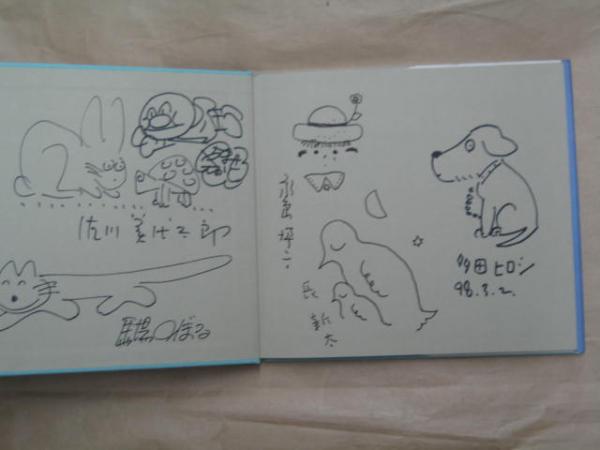 佐川美代太郎
馬場のぼる
永島慎二
長
新太
多田ヒロシ
98.3.2.